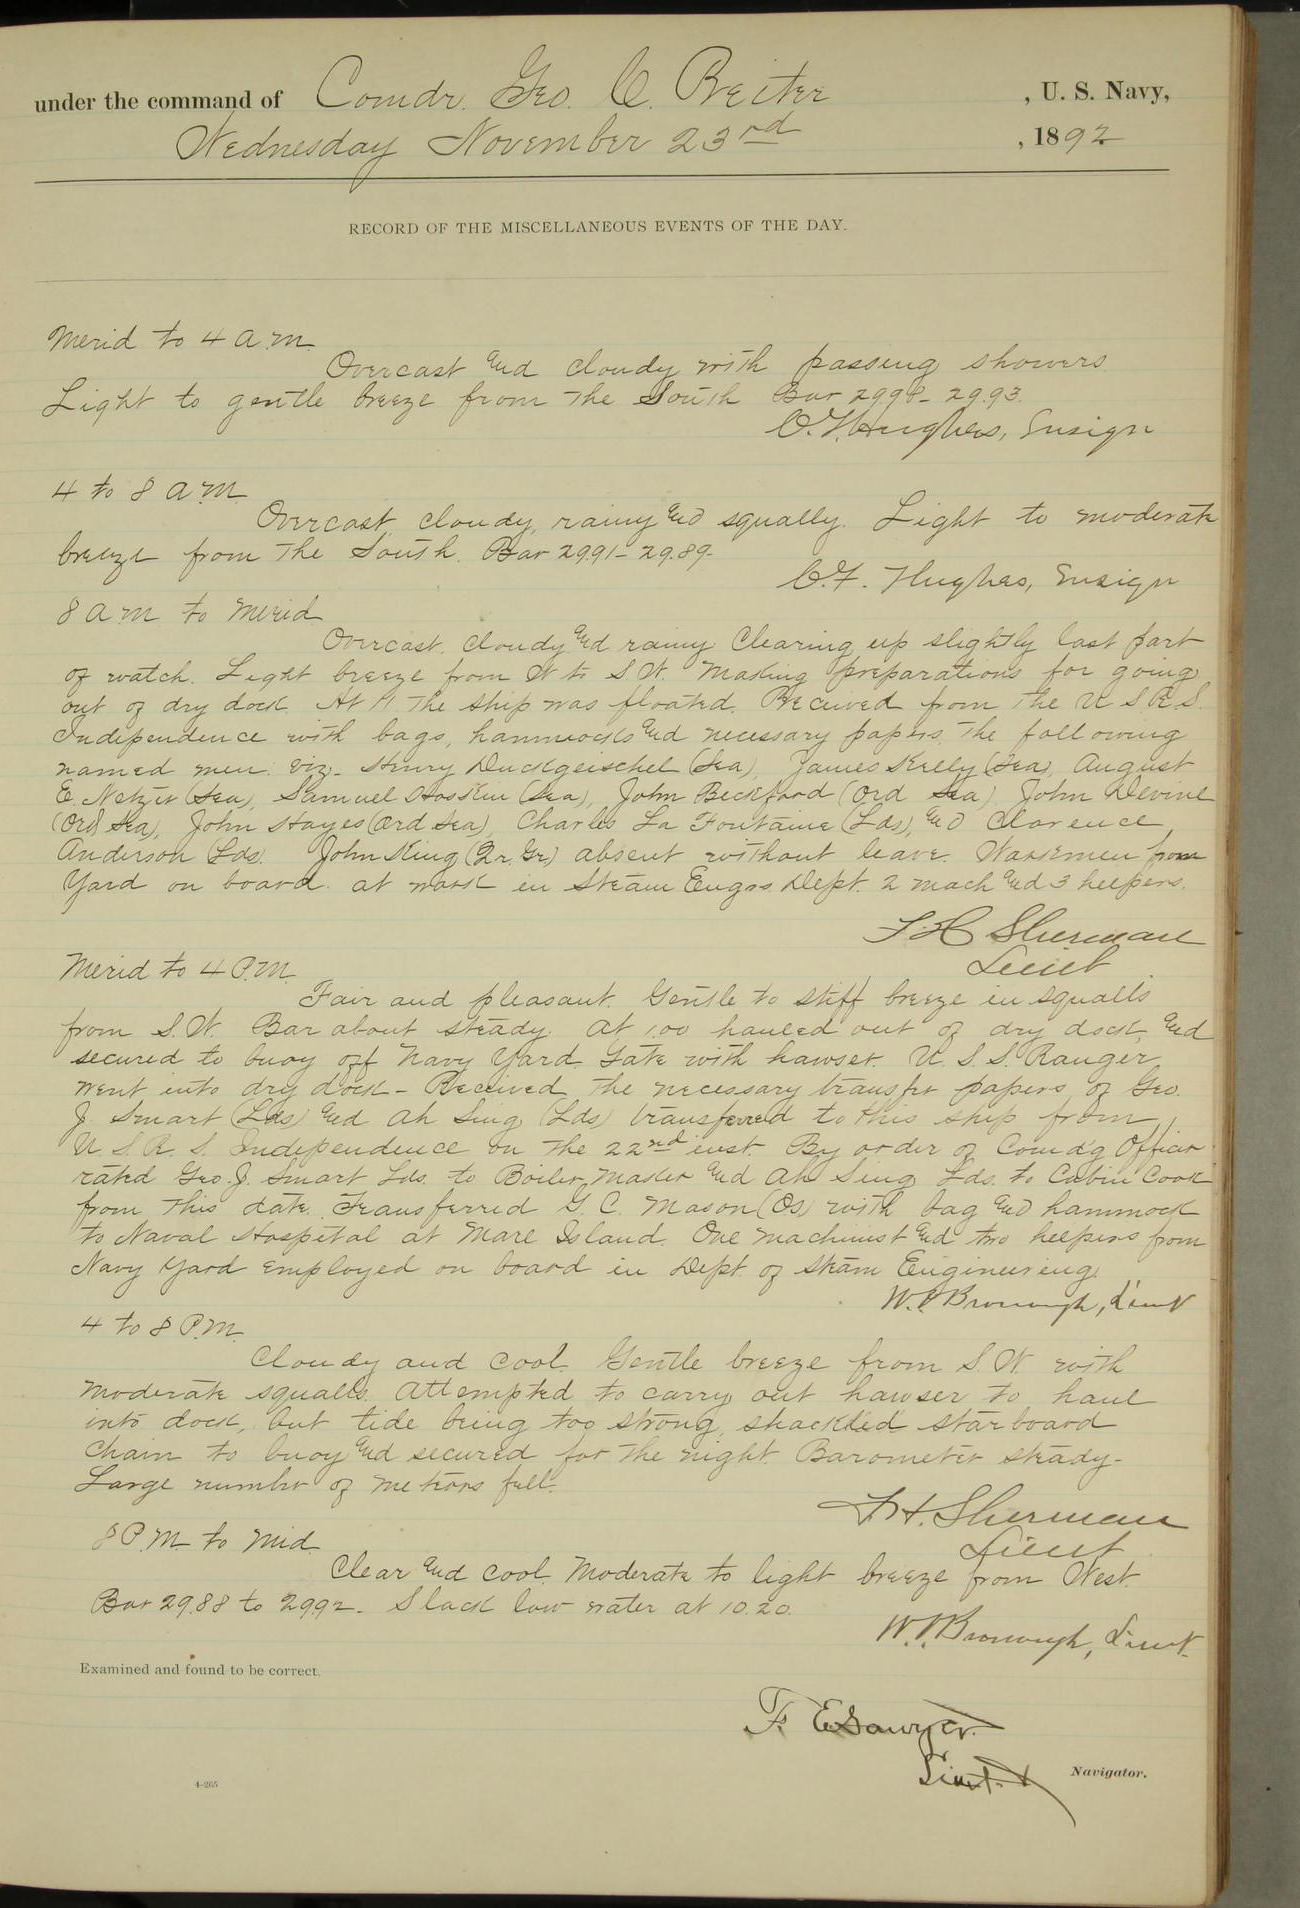 under the command of Comdr. Geo. C. Reiter , U. S. Navy,
Wednesday November 23rd , 1892
RECORD OF THE MISCELLANEOUS EVENTS OF THE DAY.
Merid to 4 a.m.
Overcast and cloudy with passing showers
Light to gentle breeze from the South Bar 29.98 - 29.93.
C.F. Hughes, Ensign
4 to 8 a.m.
Overcast, cloudy, rainy and squally. Light to moderate
breeze from the South. Bar 29.91 - 29.89.
C.F. Hughes, Ensign
8 a.m. to Merid
Overcast, cloudy and rainy Clearing up slightly last part
of watch. Light breeze from W to S.W. Making preparations for going
out of dry dock. At 11 the ship was floated. Received from the U S R S.
Independence with bags, hammocks and necessary papers, the following
named men. viz - Henry Duckgeischel (Sea), James Kelly (Sea), August
E. Netzer (Sea), Samuel Hosskin (Sea), John Beckford (Ord Sea), John Devine
(Ord Sea), John Hayes (Ord Sea), Charles La Fontaine (Lds), and Clarence
Anderson (Lds). John King (Qr. Gr.) absent without leave. Workmen from
Yard on board at work in Steam Engrs Dept. 2 mach and 3 helpers.
F. H. Sherman
Lieut
Merid to 4 P.M.
Fair and pleasant. Gentle to stiff breeze in squalls
from S.W. Bar about steady. At 1.00 hauled out of dry dock, and
secured to buoy off Navy Yard Gate with hawser. U. S. S. Ranger
went into dry dock - Received the necessary transfer papers of Geo.
J. Smart (Lds) and Ah Sing (Lds) transferred to this ship from
U. S. R. S. Independence on the 22nd inst. By order of Comd'g Officer
rated Geo. J. Smart Lds. to Boiler Maker and Ah Sing Lds. to Cabin Cook
from this date. Transferred G. C. Mason (Os) with bag and hammock
to Naval Hospital at Mare Island. One machinist and two helpers from
Navy Yard employed on board in Dept. of Steam Engineering.
W. V. Bronaugh, Lieut
4 to 8 P.M.
Cloudy and cool. Gentle breeze from S.W. with
moderate squalls. Attempted to carry out hawser to haul
into dock, but tide being too strong, shackled starboard
chain to buoy and secured for the night. Barometer steady.
Large number of meteors fell.
F. H. Sherman
Lieut
8 P.M. to Mid.
Clear and cool. Moderate to light breeze from West.
Bar 29.88 to 29.92. Slack low water at 10.20.
W. V. Bronaugh, Lieut.
Examined and found to be correct.
F. E. Sawyer.
Lieut.
Navigator.
4-265